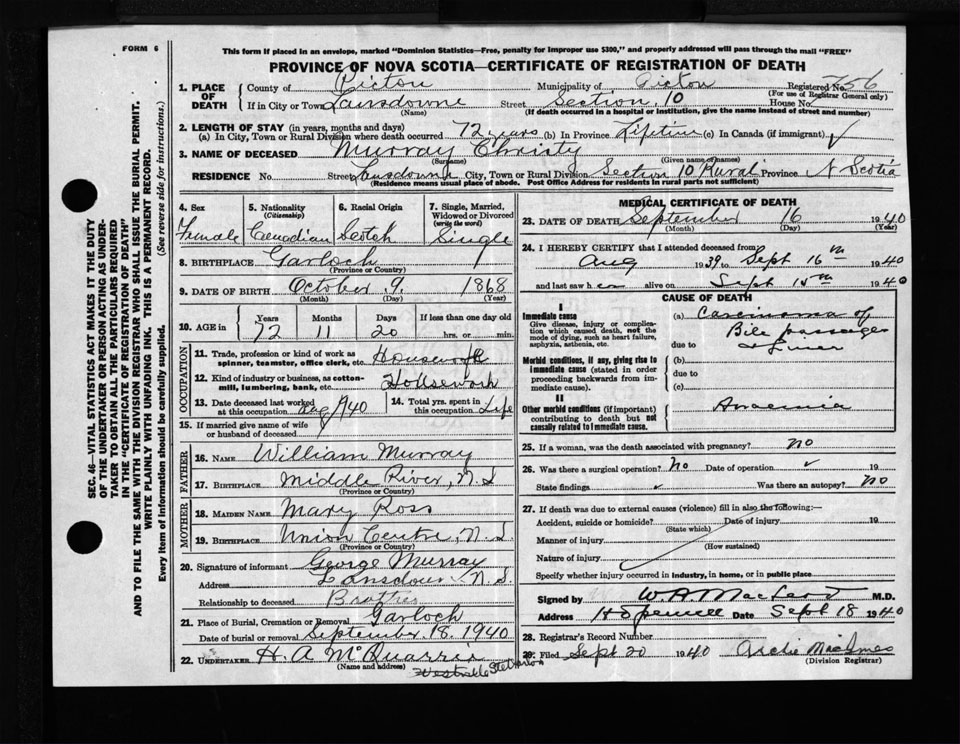 FORM 6
This form if placed in an envelope, marked "Dominion Statistics—Free, penalty for improper use $300," and properly addressed will pass through the mail "FREE"
PROVINCE OF NOVA SCOTIA—CERTIFICATE OF REGISTRATION OF DEATH
SEC. 46—VITAL STATISTICS ACT MAKES IT THE DUTY
OF THE UNDERTAKER OR PERSON ACTING AS UNDER-
TAKER TO OBTAIN ALL THE PARTICULARS REQUIRED
IN THE "CERTIFICATE OF REGISTRATION OF DEATH"
AND TO FILE THE SAME WITH THE DIVISION REGISTRAR WHO SHALL ISSUE THE BURIAL PERMIT.
WRITE PLAINLY WITH UNFADING INK. THIS IS A PERMANENT RECORD.
Every item of information should be carefully supplied. (See reverse side for instructions.)
1. PLACE OF DEATH
County of Pictou Municipality of Pictou Registered No. 756
(For use of Registrar General only)
If in City or Town Lansdowne Street Section 10 House No.
(Name) (If death occurred in a hospital or institution, give the name instead of street and number)
2. LENGTH OF STAY (in years, months and days)
(a) In City, Town or Rural Division where death occurred 72 years (b) In Province Lifetime (c) In Canada (if immigrant) ✓
3. NAME OF DECEASED Murray Christy
(Surname) (Given name or names)
RESIDENCE No. Street Lansdowne City, Town or Rural Division Section 10 Rural Province N Scotia
(Residence means usual place of abode. Post Office Address for residents in rural parts not sufficient)
4. Sex
Female
5. Nationality
(Citizenship)
Canadian
6. Racial Origin
Scotch
7. Single, Married, Widowed or Divorced
(write the word)
Single
8. BIRTHPLACE Garloch
(Province or Country)
9. DATE OF BIRTH October 9. 1868
(Month) (Day) (Year)
10. AGE in Years Months Days If less than one day old
72 11 20 hrs. or min.
OCCUPATION
11. Trade, profession or kind of work as
spinner, teamster, office clerk, etc. Housework
12. Kind of industry or business, as cotton-
mill, lumbering, bank, etc. Housework
13. Date deceased last worked
at this occupation Aug 1940
14. Total yrs. spent
in this occupation Life
15. If married give name of wife
or husband of deceased
FATHER
16. NAME William Murray
17. BIRTHPLACE Middle River, N.S
(Province or Country)
MOTHER
18. MAIDEN NAME Mary Ross
19. BIRTHPLACE Union Centre, N.S.
(Province or Country)
20. Signature of informant George Murray
Address Lansdown N.S.
Relationship to deceased Brother
21. Place of Burial, Cremation or Removal Garloch
Date of burial or removal September. 18. 1940
22. UNDERTAKER H. A McQuarrie
(Name and address)
Westville Stellarton
MEDICAL CERTIFICATE OF DEATH
23. DATE OF DEATH September 16 1940
(Month) (Day) (Year)
24. I HEREBY CERTIFY that I attended deceased from
Aug 1939 to Sept 16th 1940
and last saw her alive on Sept 15th 1940
CAUSE OF DEATH
I
Immediate cause
Give disease, injury or complica-
tion which caused death, not the
mode of dying, such as heart failure,
asphyxia, asthenia, etc.
(a) Carcinoma of
Bile passages
due to & Liver
Morbid conditions, if any, giving rise to
immediate cause (stated in order
of proceeding backwards from im-
mediate cause).
(b)
due to
(c)
II
Other morbid conditions (if important)
contributing to death but not
causally related to immediate cause.
Anaemia
25. If a woman, was the death associated with pregnancy? no
26. Was there a surgical operation? no Date of operation ✓ 19
State findings ✓ Was there an autopsy? no
27. If death was due to external causes (violence) fill in also the following:—
Accident, suicide or homicide? Date of injury 19
(State which)
Manner of injury
(How sustained)
Nature of injury
Specify whether injury occurred in industry, in home, or in public place
Signed by W. A MacLeod M.D.
Address Hopewell Date Sept 18 1940
28. Registrar's Record Number
29. Filed Sept 20 1940 Archie MacInnes
(Division Registrar)